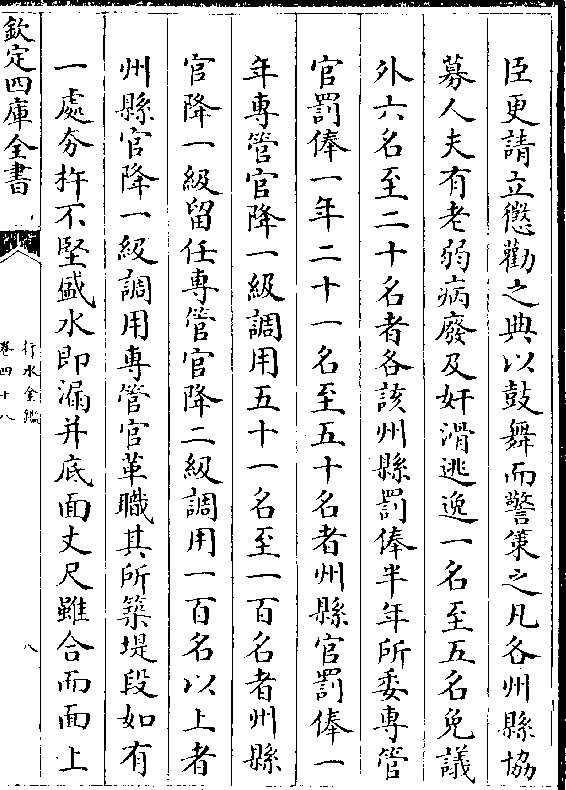 臣更請立懲勸之典以鼓舞而警策之凡各州縣協
募人夫有老弱病廢及奸滑逃逸一名至五名免議
外六名至二十名者各該州縣罰俸半年所委專管
官罰俸一年二十一名至五十名者州縣官罰俸一
年專管官降一級調用五十一名至一百名者州縣
官降一級留任專管官降二級調用一百名以上者
州縣官降一級調用專管官革職其所築堤段如有
一處夯杵不堅盛水即漏并底面丈尺雖合而面上
欽定四庫全書
行水金鑑
卷四十八
八